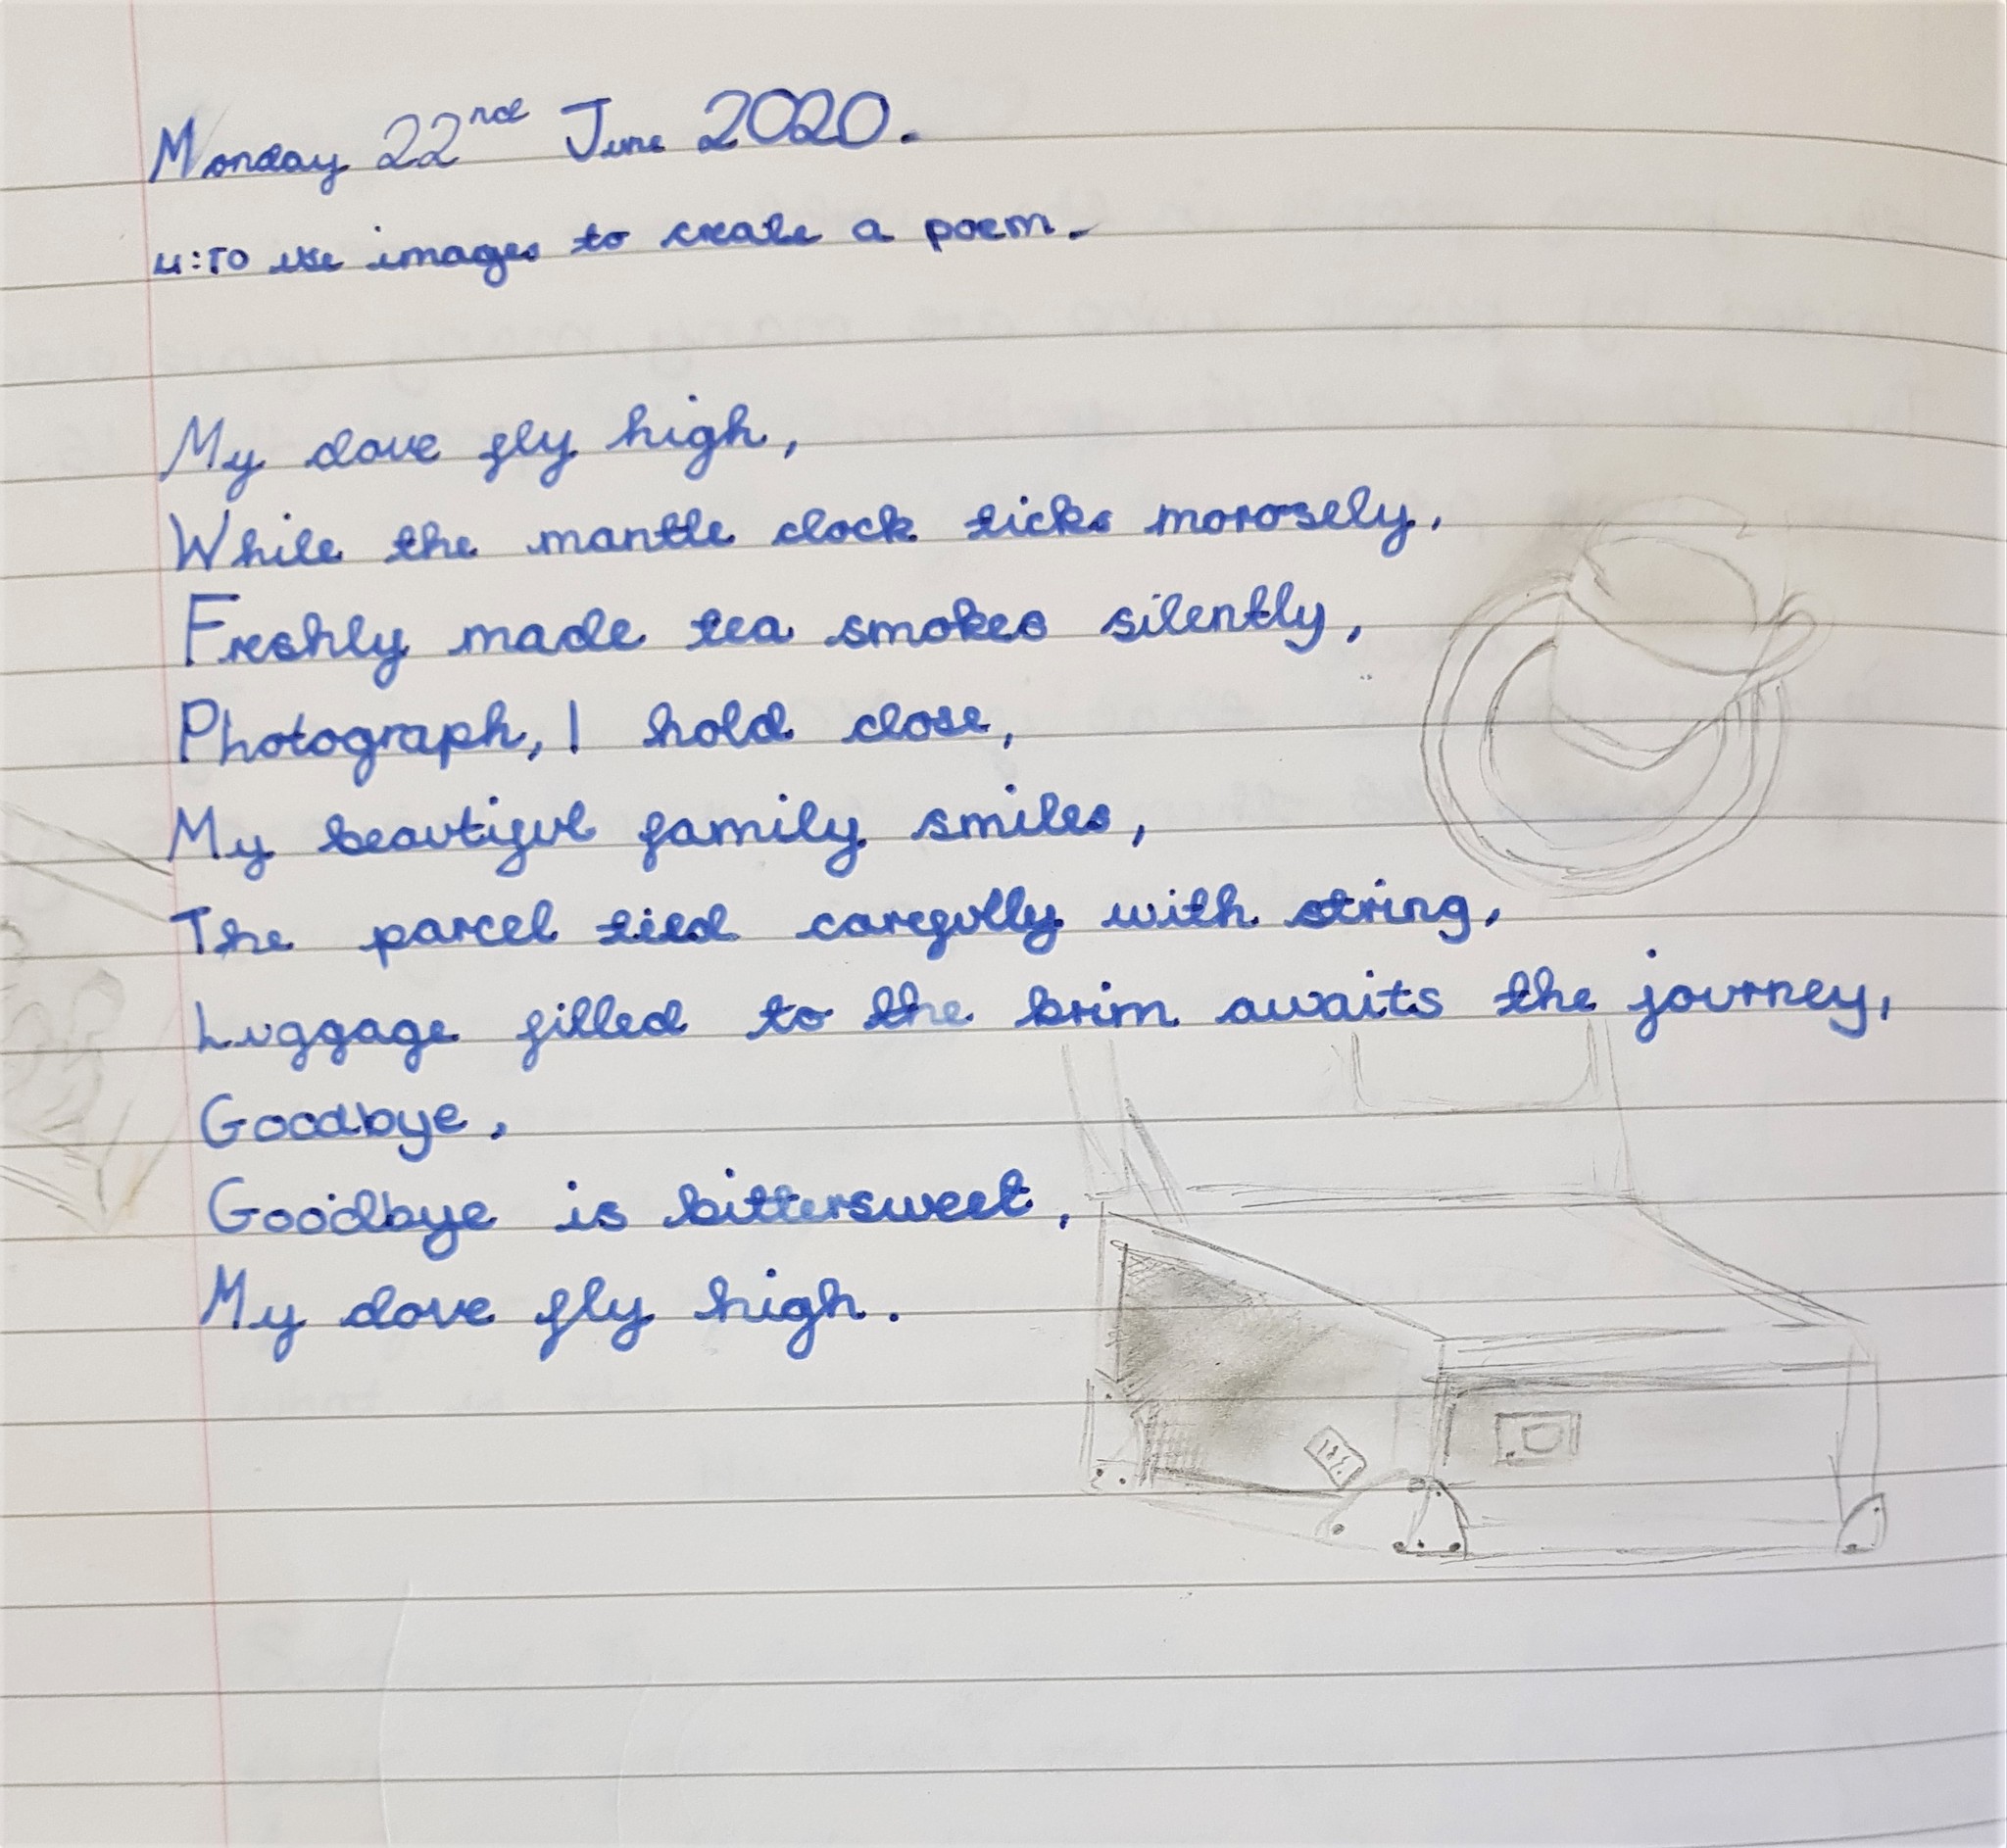 Monday 22nd June 2020.
LI: TO use images to create a poem.
My dove fly high,
While the mantle clock ticks morosely,
Freshly made tea smokes silently,
Photograph, I hold close,
My beautiful family smiles,
The parcel tied carefully with string,
Luggage filled to the brim awaits the journey,
Goodbye,
Goodbye is bittersweet,
My dove fly high.